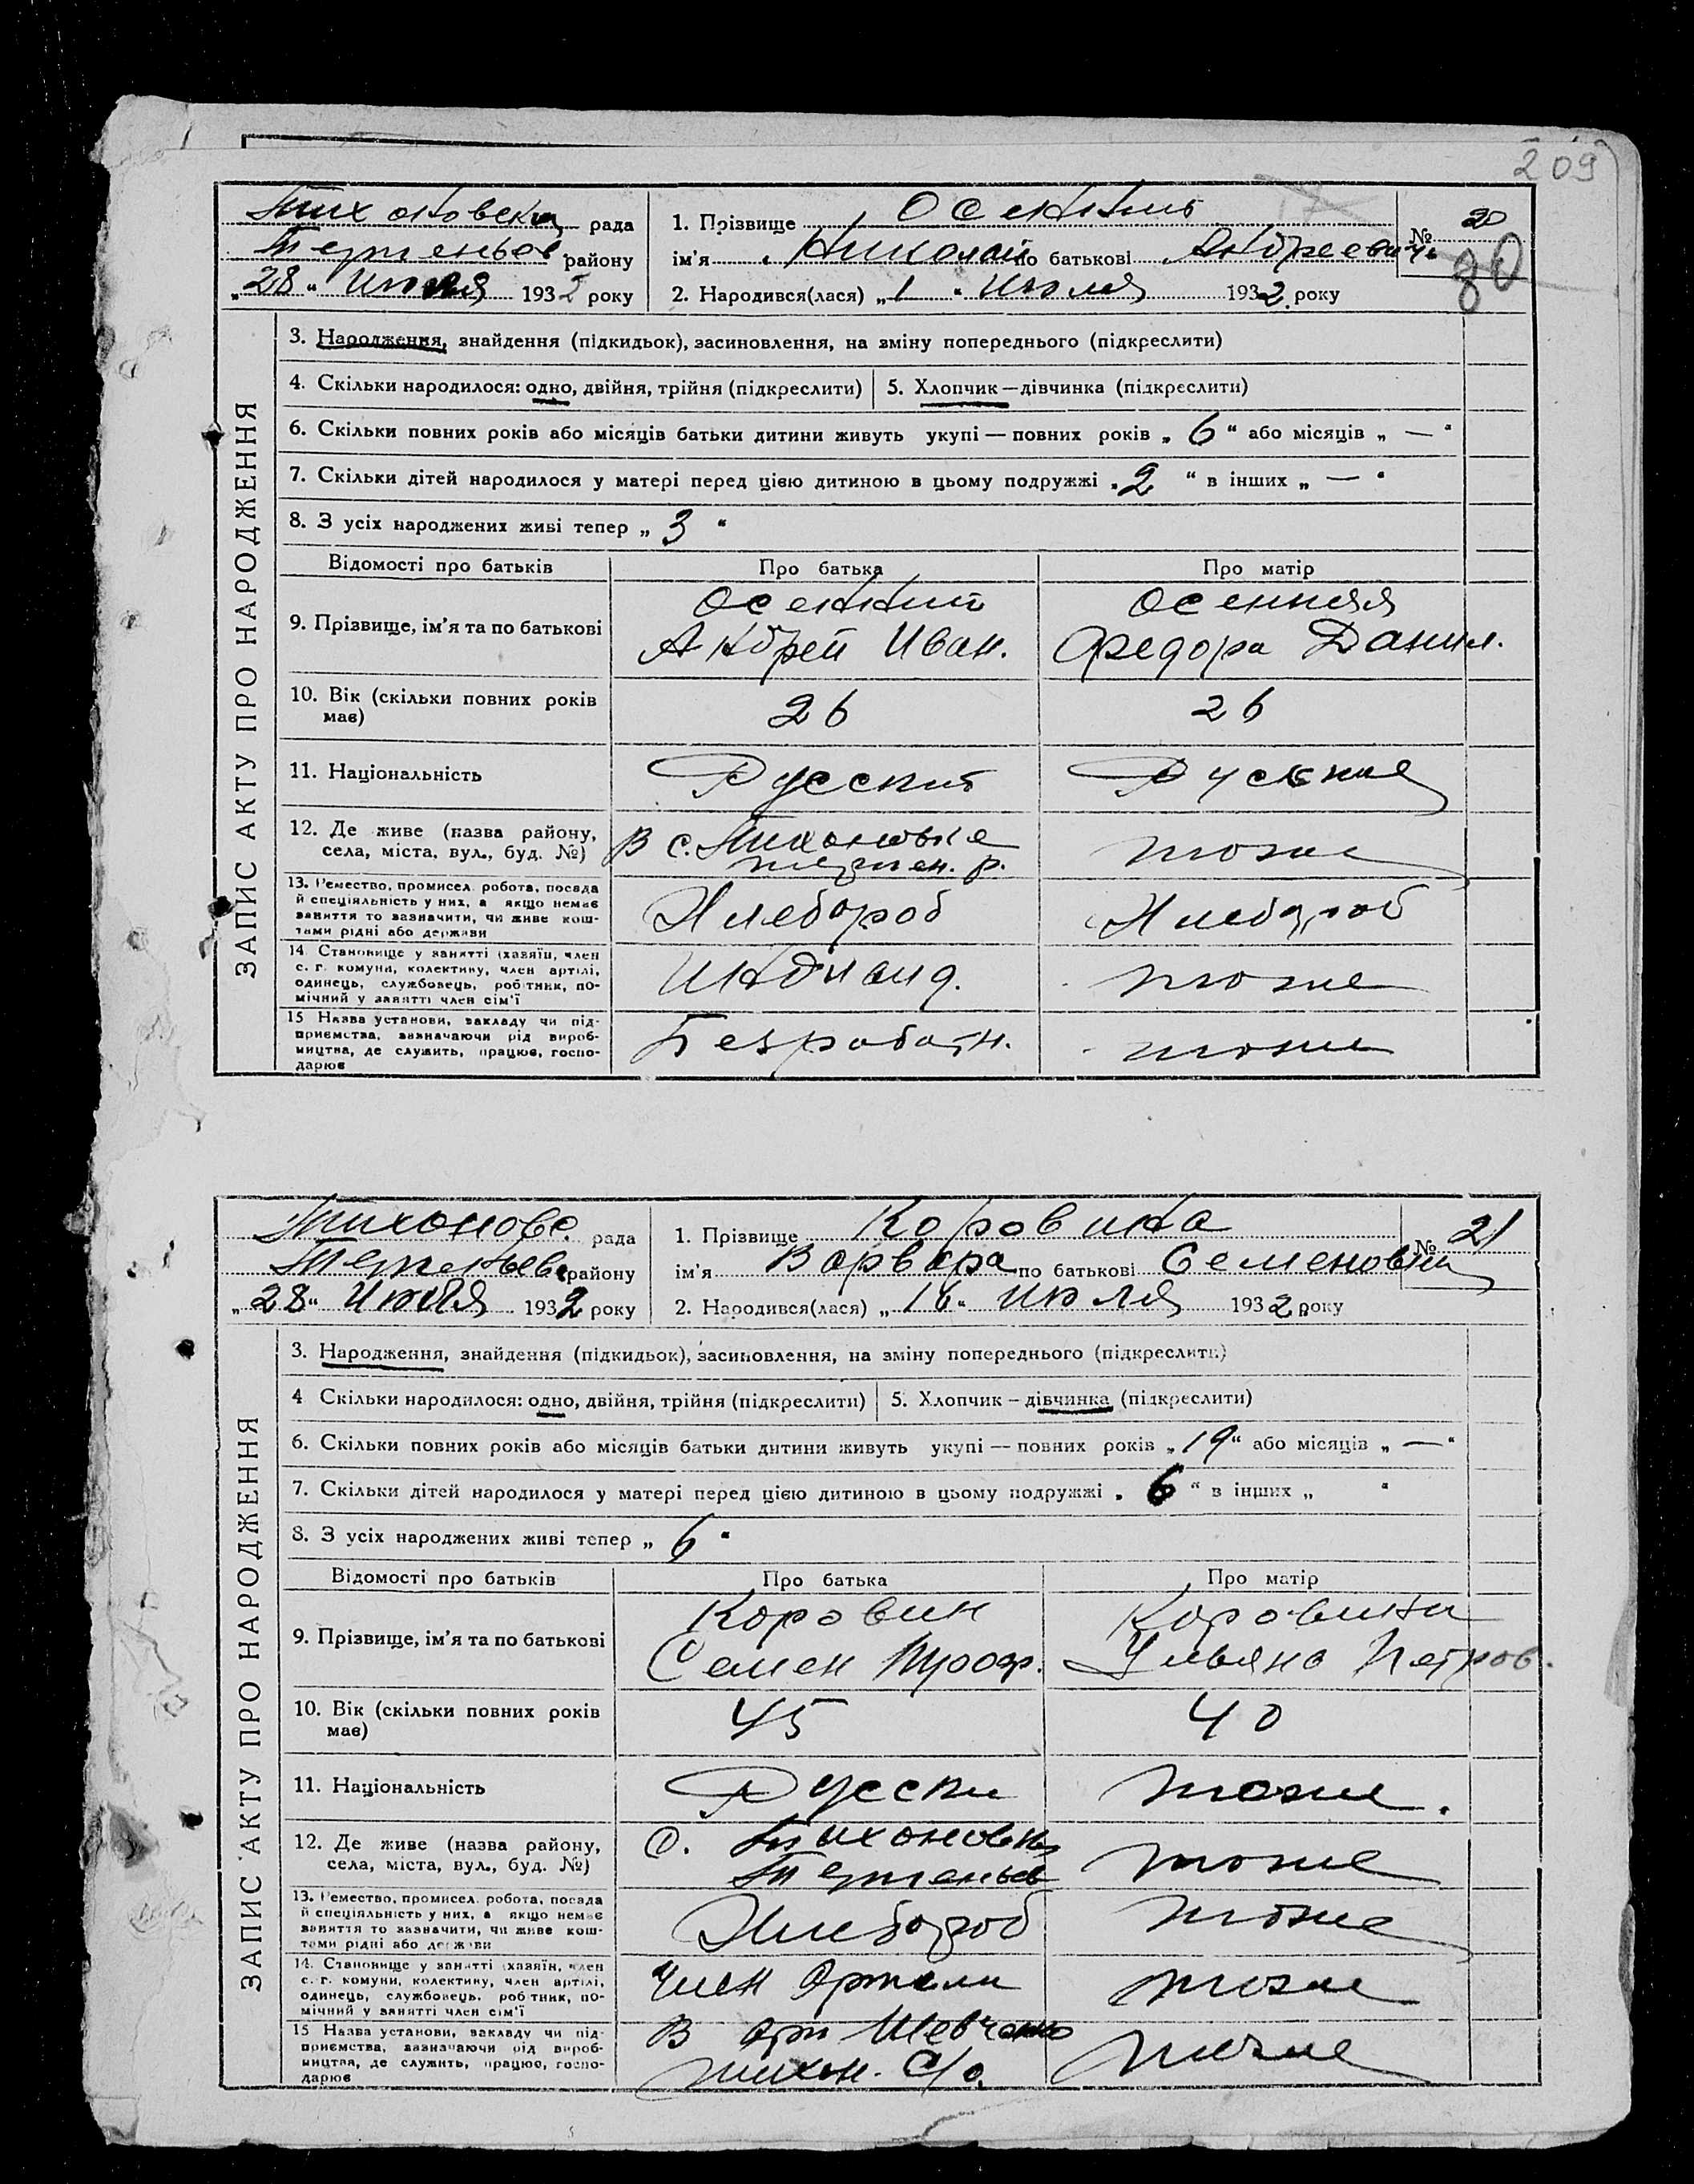 209
Тихоновская рада
Терпеньев. району
„28“ Июля 1932 року
1. Прізвище Осенний
ім'я Николай по батькові Андреевич
2. Народився(лася) „1“ Июля 1932 року
№ 20
80
ЗАПИС АКТУ ПРО НАРОДЖЕННЯ
3. Народження, знайдення (підкидьок), засиновлення, на зміну попереднього (підкреслити)
4. Скільки народилося: одно, двійня, трійня (підкреслити) 5. Хлопчик—дівчинка (підкреслити)
6. Скільки повних років або місяців батьки дитини живуть укупі — повних років „6“ або місяців „—“
7. Скільки дітей народилося у матері перед цією дитиною в цьому подружжі „2“ в інших „—“
8. З усіх народжених живі тепер „3“
Відомості про батьків Про батька Про матір
9. Прізвище, ім'я та по батькові
Осенний
Андрей Иван.
Осенняя
Федора Данил.
10. Вік (скільки повних років
має)
26
26
11. Національність
Русский
Руская
12. Де живе (назва району,
села, міста, вул., буд. №)
В с. Тихоновке
терпен. р.
тоже
13. Ремество, промисел. робота, посада
й спеціяльність у них, а якщо немає
заняття то зазначити, чи живе кош-
тами рідні або держави
Хлебороб
Хлебороб
14. Становище у занятті (хазяїн, член
с. г. комуни, колективу, член артілі,
одинець, службовець, робітник, по-
мічний у занятті член сім'ї
Индивид.
тоже
15 Назва установи, закладу чи під-
приємства, зазначаючи рід вироб-
ництва, де служить, працює, госпо-
дарює
Безработн.
тоже
Тихоновс. рада
Терпеньев. району
„28“ Июля 1932 року
1. Прізвище Коровина
ім'я Варвара по батькові Семеновна
2. Народився(лася) „16“ Июля 1932 року
№ 21
ЗАПИС АКТУ ПРО НАРОДЖЕННЯ
3. Народження, знайдення (підкидьок), засиновлення, на зміну попереднього (підкреслити)
4 Скільки народилося: одно, двійня, трійня (підкреслити) 5. Хлопчик – дівчинка (підкреслити)
6. Скільки повних років або місяців батьки дитини живуть укупі — повних років „19“ або місяців „—“
7. Скільки дітей народилося у матері перед цією дитиною в цьому подружжі „6“ в інших „ “
8. З усіх народжених живі тепер „6“
Відомості про батьків Про батька Про матір
9. Прізвище, ім'я та по батькові
Коровин
Семен Троф.
Коровина
Ульяна Петров.
10. Вік (скільки повних років
має)
45
40
11. Національність
Русски
тоже.
12. Де живе (назва району,
села, міста, вул., буд. №)
С. Тихоновка
Терпеньев
тоже
13. Ремество, промисел. робота, посада
й спеціяльність у них, а якщо немає
заняття то зазначити, чи живе кош-
тами рідні або держави
Хлебороб
тоже
14. Становище у занятті (хазяїн, член
с. г. комуни, колективу, член артілі,
одинець, службовець, робітник, по-
мічний у занятті член сім'ї
Член Артели
тоже
15 Назва установи, закладу чи під-
приємства, зазначаючи рід вироб-
ництва, де служить, працює, госпо-
дарює
В арт Шевченко
тихон. С/с.
тоже